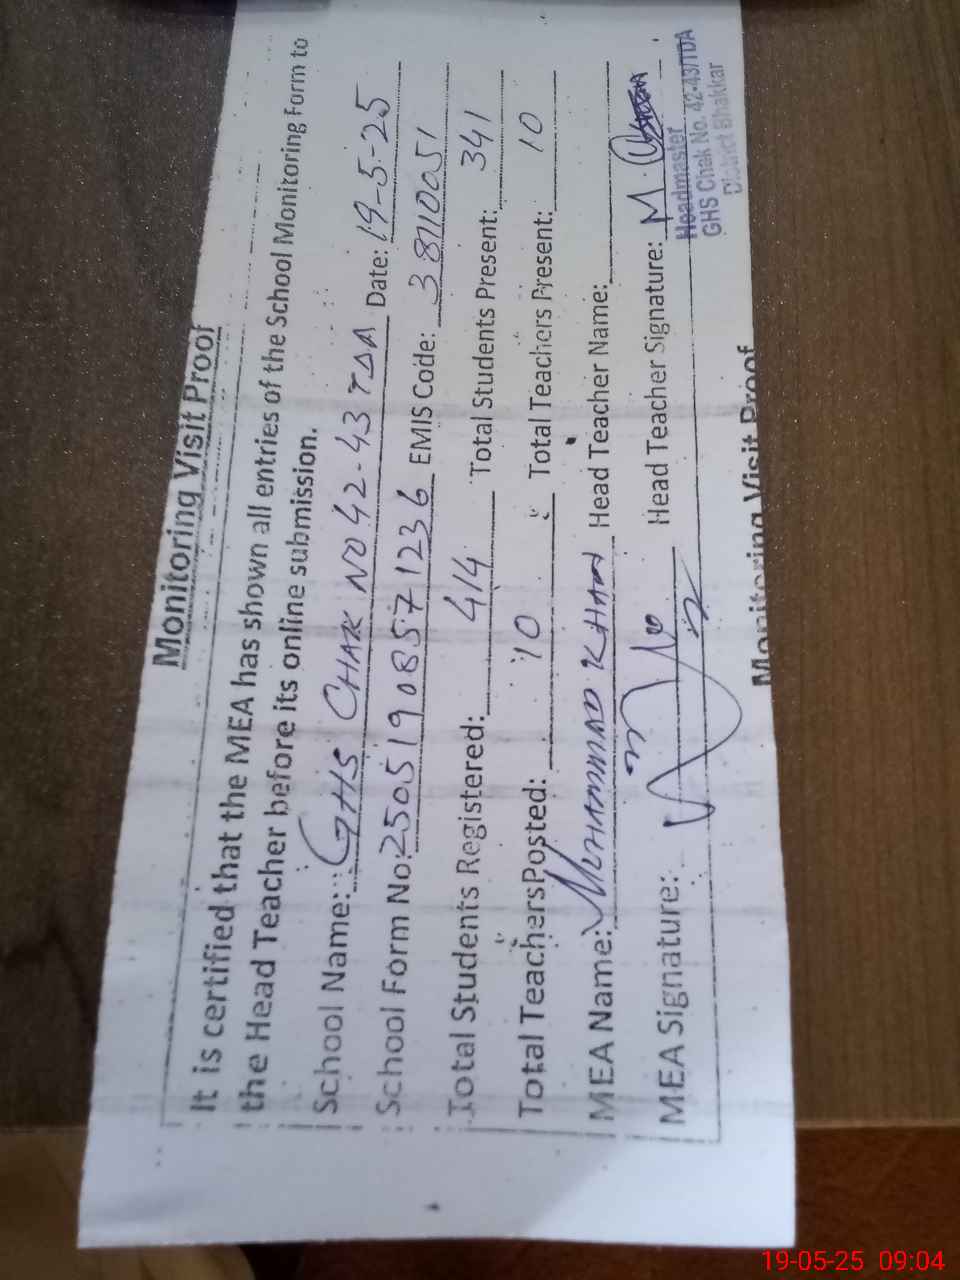 Monitoring Visit Proof
It is certified that the MEA has shown all entries of the School Monitoring Form to
the Head Teacher before its online submission.
School Name: GHS CHAK NO 42-43 TDA Date: 19-5-25
School Form No: 25051908571236 EMIS Code: 38110051
Total Students Registered: 414 Total Students Present: 341
Total TeachersPosted: 10 Total Teachers Present: 10
MEA Name: MUHAMMAD KHAN Head Teacher Name:
MEA Signature: Head Teacher Signature: M.
Headmaster
GHS Chak No. 42-43/TDA
District Bhakkar
Monitoring Visit Proof
19-05-25 09:04